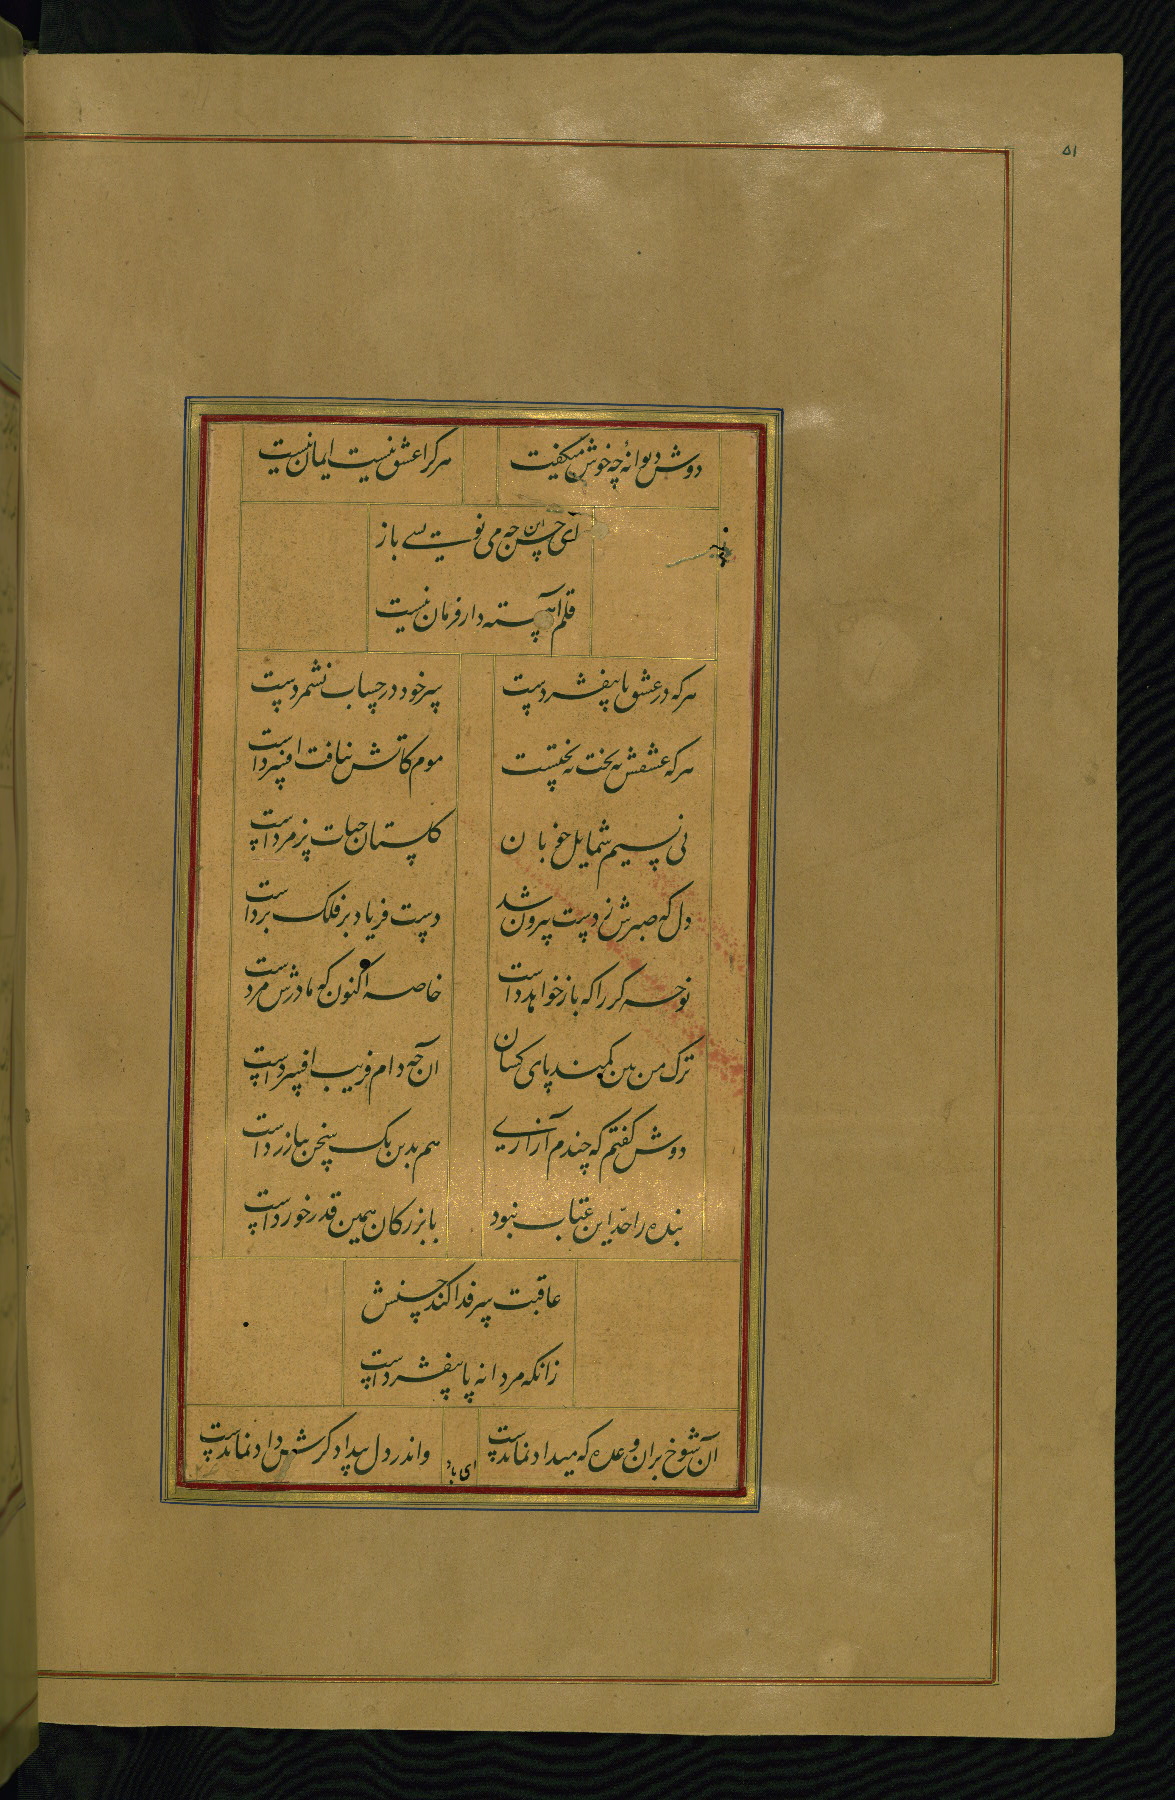 ۵۱
دوش دیوانهٔ چه خوش میکفت هرکرا عشق نیست ایمان نیست
ای حسن این چه می نویسی باز
قلم آهسته دار فرمان نیست
هرکه در عشق پا بیفشردست سر خود در حساب نشمردست
هرکه عشقش نپخت نه پختست موم کاتش نیافت افسرداست
بی نسیم شمایل خوبان کلستان حیات پزمرداست
دل که صبرش ز دست بیرون شد دست فریاد بر فلک برداست
نوحه کر را که باز خواهد داشت خاصه اکنون که مادرش مردست
ترک من بین کمند پای کسان آن چه دام فریب افسرداست
دوش کفتم که چندم آزاری هم بدین یک سخن بیازرداست
بنده را حد این عتاب نبود با بزرکان همین قدر خورداست
عاقبت سر فدا کند حسنش
زانکه مردانه پا بیفشرداست
آن شوخ بران وعده که میداد نماندست واندر دل بیدادکرش داد نماندست
ای باد